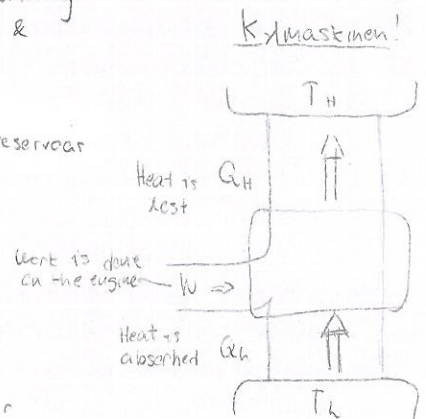 &
Kylmaskinen!
T_H
reservoar
Heat is Q_H
lost
Work is done
on the engine W ⇒
Heat is Q_L
absorbed
T_L
r